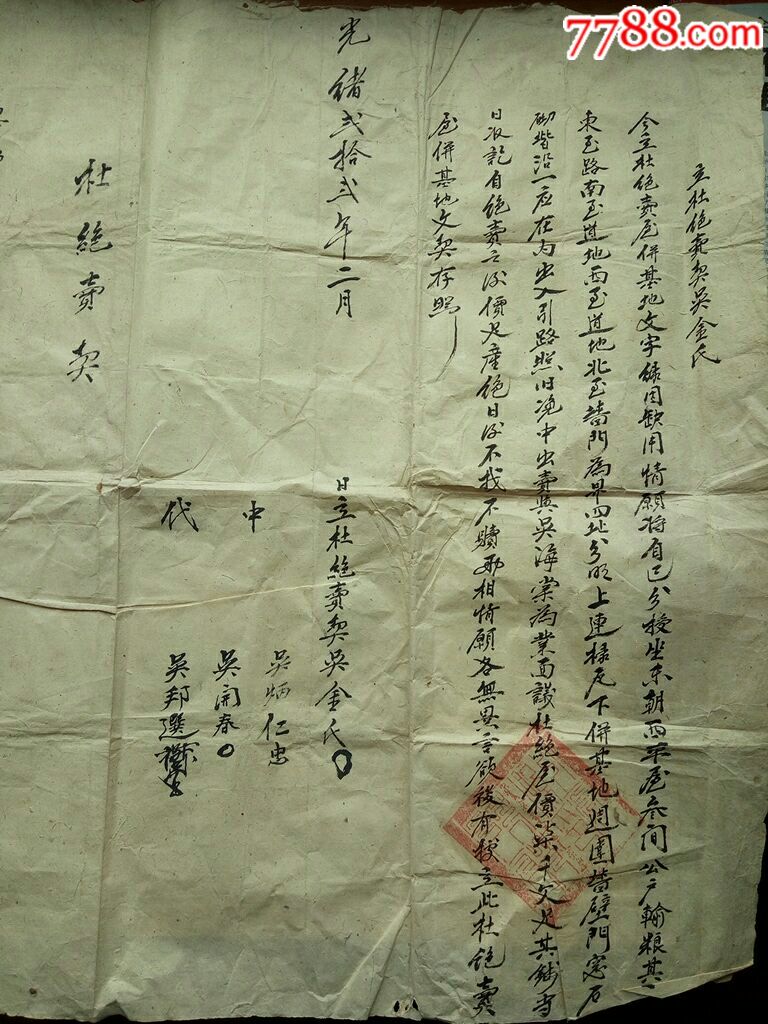 7788.com
立杜絕賣契吳金氏
今立杜絕賣屋併基地文字緣因缺用情願將自己分授坐東朝西平屋叁间公戶輸粮其
東至路南至道地西至道地北至墻門為界四址分明上連椽瓦下併基地週圍墻壁門窓石
砌堦沿一应在內出入引路照旧凂中出賣與吳海棠為業面議杜絕屋價柒千文足其錢当
日收訖自絕賣之後價足產絕日後不找不贖两相情願各無異言欲後有據立此杜絕賣
屋併基地文契存照
光緒弍拾弍年二月
日立杜絕賣契吳金氏
中
吳炳仁忠
吳開春
代
吳邦選
杜絕賣契